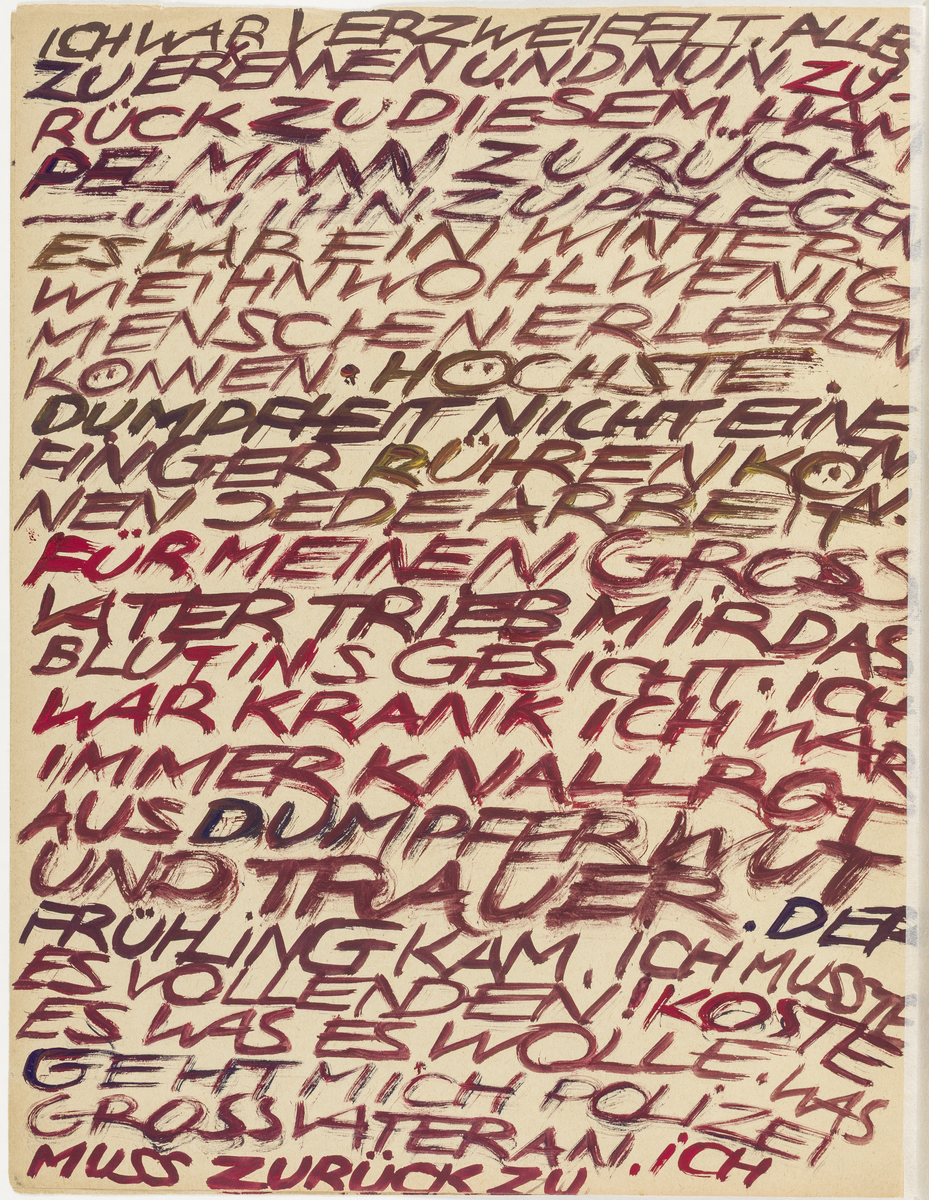 ICH WAR VERZWEIFELT. ALLES
ZU ERKENNEN UND NUN ZU-
RÜCK ZU DIESEM HAM
PELMANN ZURÜCK
— UM IHN ZU PFLEGEN
ES WAR EIN WINTER.
WIE IHN WOHL WENIG
MENSCHEN ERLEBEN
KÖNNEN. HÖCHSTE
DUMPFHEIT NICHT EINEN
FINGER RÜHREN KÖN
NEN JEDE ARBEIT.
FÜR MEINEN GROSS
VATER TRIEB MIR DAS
BLUT IN'S GESICHT. ICH
WAR KRANK ICH WAR
IMMER KNALLRGT
AUS DUMPFER WUT
UND TRAUER. DER
FRÜHLING KAM. ICH MUSSTE
ES VOLLENDEN! KOSTE
ES WAS ES WOLLE. WAS
GEHT MICH POLIZEI
GROSSVATER AN. ICH
MUSS ZURÜCK ZU